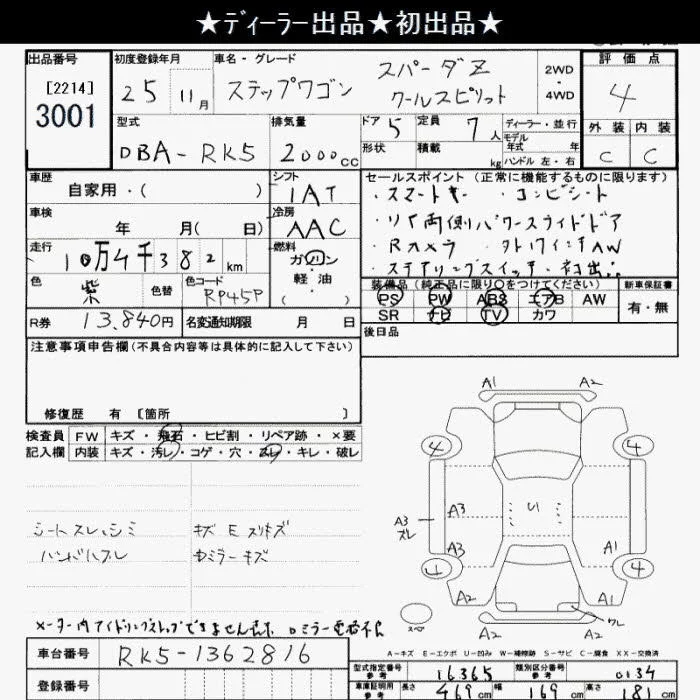 ★ディーラー出品★初出品★
出品番号
[2214]
3001
初度登録年月
25 11月
車名・グレード
ステップワゴン スパーダZ
クールスピリット
2WD
・
4WD
評価点
4
外装 内装
C C
型式
DBA-RK5
排気量
2000cc
ドア 5
形状
定員 7人
積載 kg
ディーラー・並行
モデル
年式 年
ハンドル 左・右
車歴
自家用・( )
シフト
IAT
車検
年 月( 日)
冷房
AAC
走行
10万4千382km
燃料
ガソリン
軽油
( )
色
紫
色替
色コード
RP45P
R券 13,840円
名変通知期限 月 日
セールスポイント (正常に機能するものに限ります)
・スマートキー ・コンビシート
・リア両側パワースライドドア
・Rカメラ ・
・ステアリングスイッチ・初出品
装備品 (純正品に限り○をつけてください)
PS PW ABS エアB AW
SR ナビ TV カワ
新車保証書
有・無
後日品
注意事項申告欄(不具合内容等は具体的に記入して下さい)
修復歴 有 [箇所 ]
検査員
記入欄
FW キズ・飛石・ヒビ割・リペア跡・×要
内装 キズ・汚レ・コゲ・穴・スレ・キレ・破レ
シートスレ、シミ キズEスリキズ
ハンドルスレ ミラーキズ
メーター内アイドリングストップできません表示 ミラー電格不良
A1 A2
4 4
A3
スレ
A3
U1
A3 A1
4 4
A2 A1
ワレ
スペア
A2
A-キズ E-エクボ U-凹み W-補修跡 S-サビ C-腐食 XX-交換済
車台番号 RK5-1362816
登録番号
型式指定番号
参考
16365
類別区分番号
参考
0134
車庫証明用
参考
長さ 469cm 幅 169cm 高さ 181cm